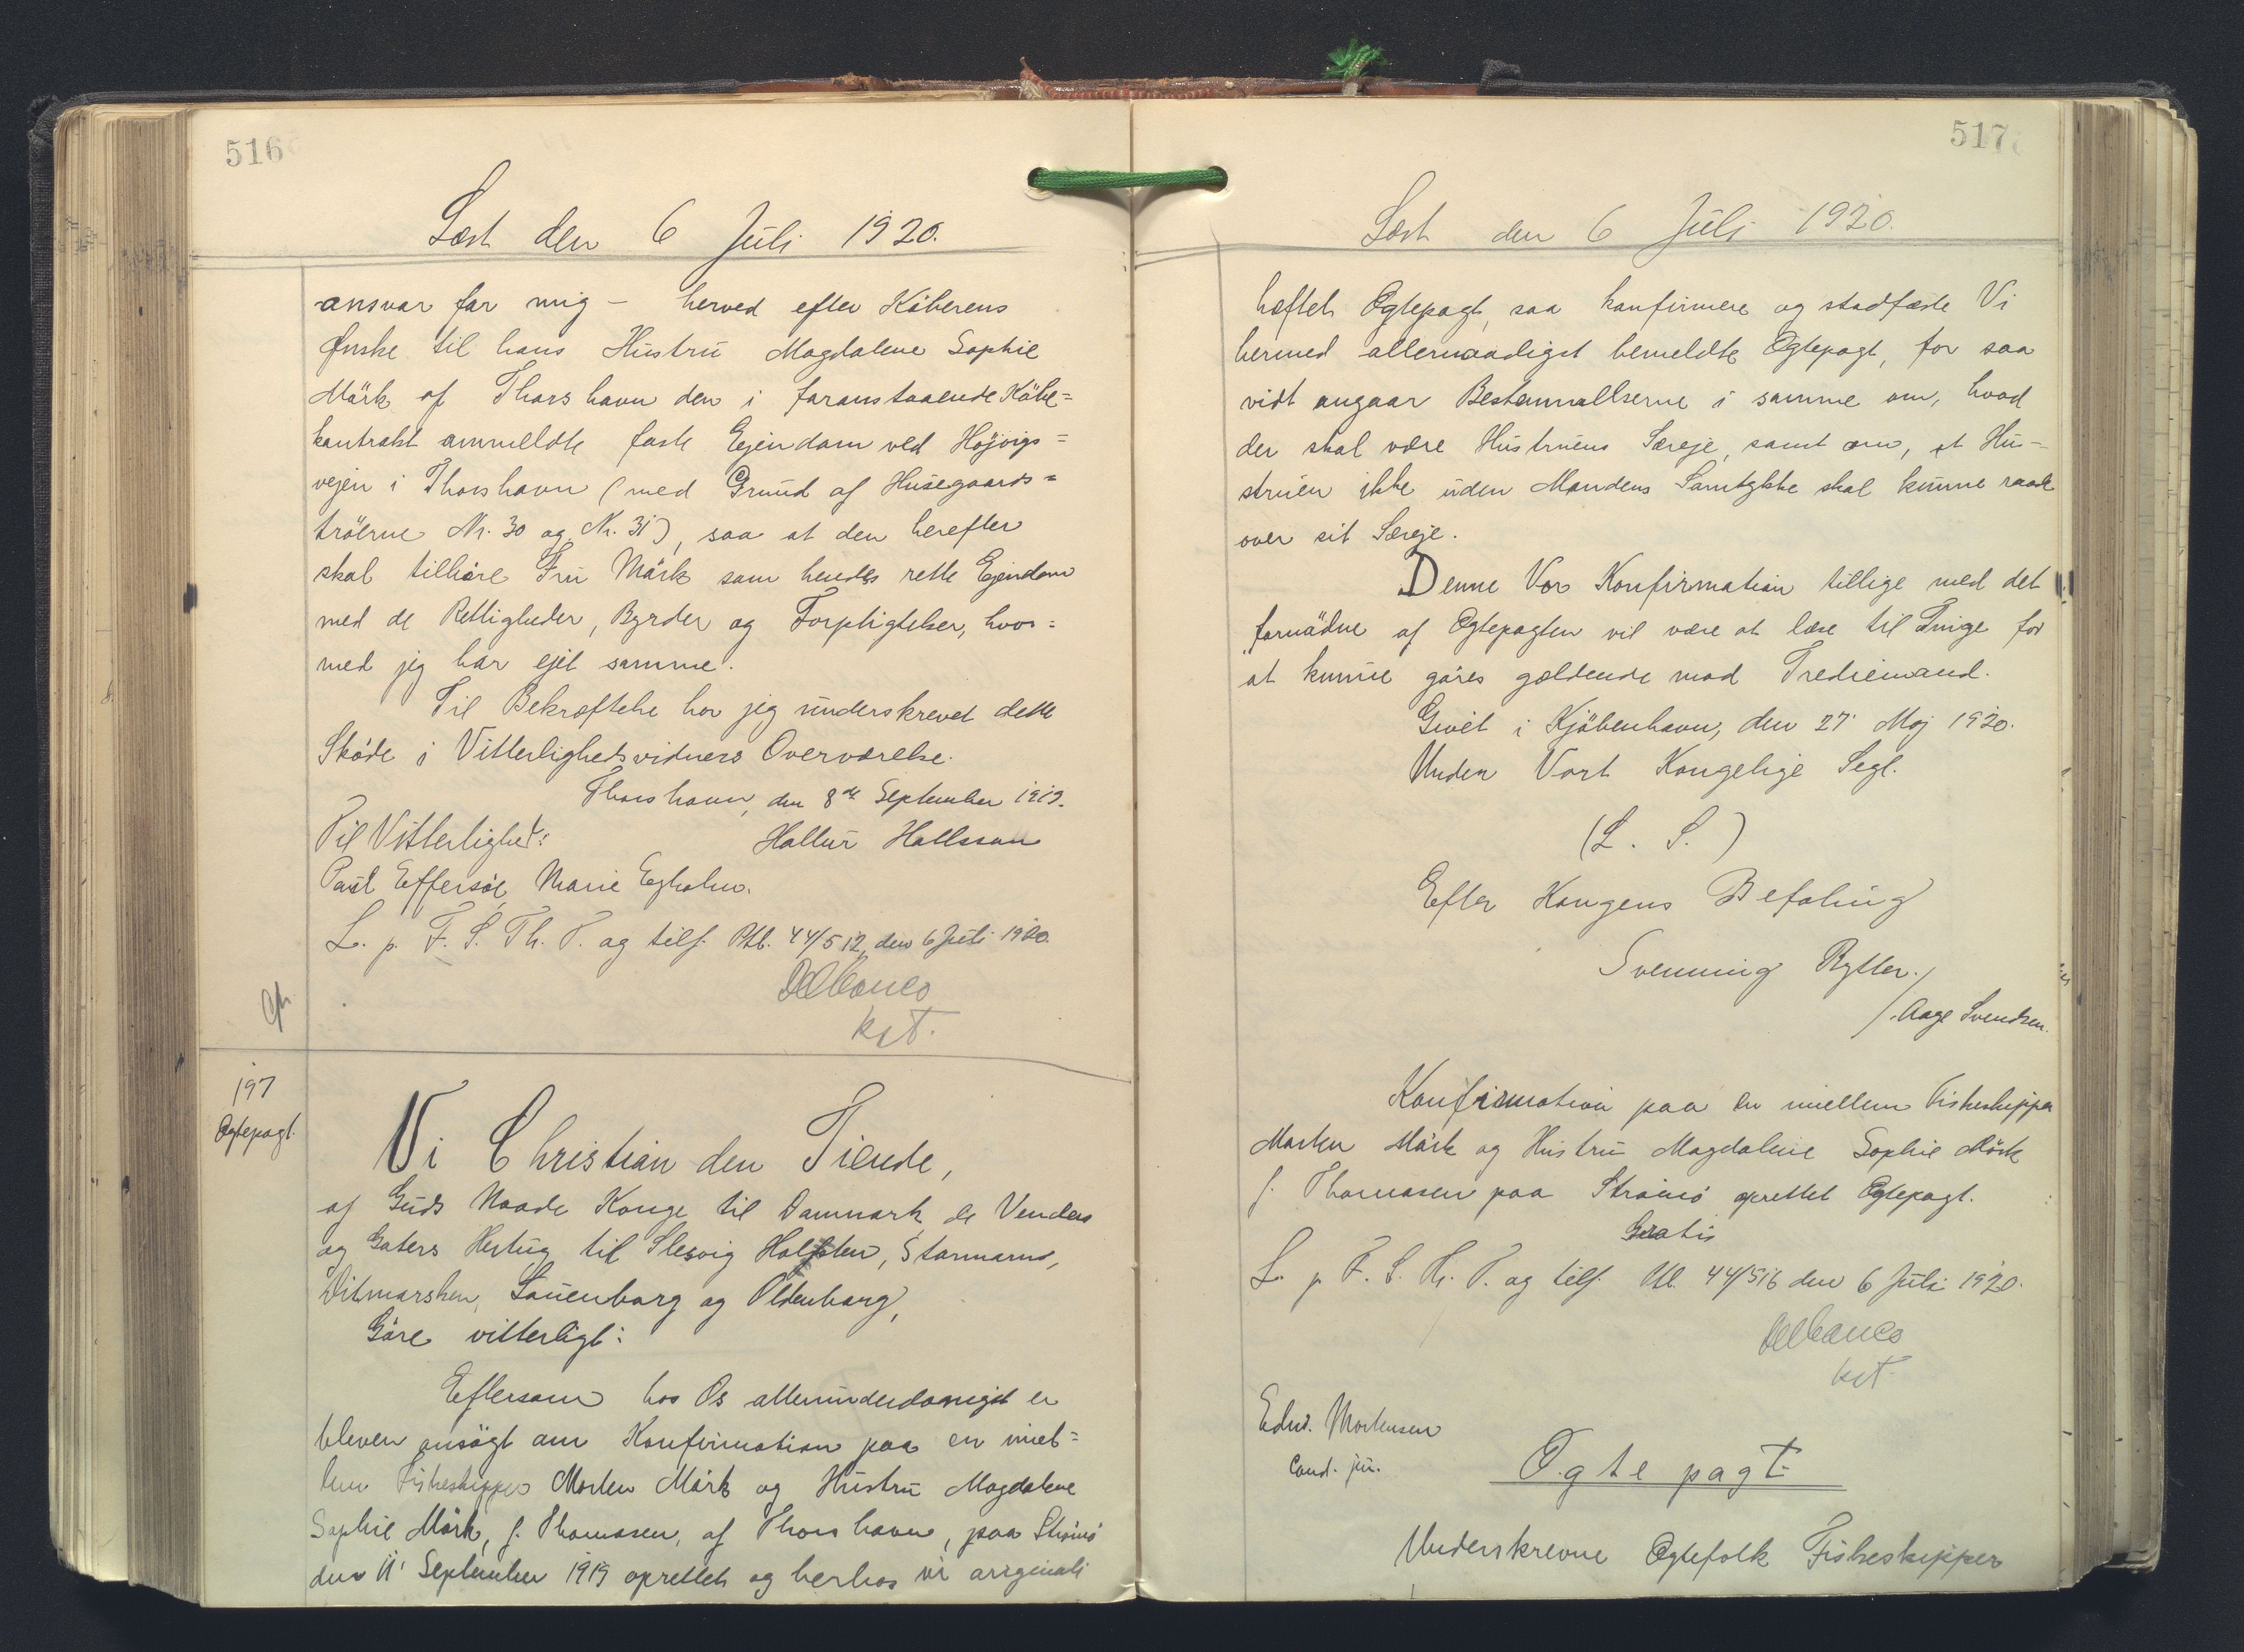 516
Læst den 6 Juli 1920.
ansvar for mig – herved efter Köberens
Ønske til hans Hustru Magdalene Sophie
Mörk af Thorshavn den i foranstaaende Köbe=
kontrakt ommeldte faste Ejendom ved Höjvigs=
vejen i Thorshavn (med Grund af Husegaards=
tröerne Nr. 30 og Nr. 31), saa at den herefter
skal tilhöre Fru Mörk som hendes rette Ejendom
med de Rettigheder, Byrder og Forpligtelser, hvor=
med jeg har ejet samme.
Til Bekræftelse har jeg underskrevet dette
Sköde i Vitterlighedsvidners Overværelse.
Thorshavn, den 8de September 1919.
Til Vitterlighed: Hallur Hallsson
Paul Effersöe, Marie Egholm.
L. p. F. S. Th. T. og tilf. Ptb. 44/512, den 6 Juli 1920.
Delbanco
kst.
197
Ægtepagt.
Vi Christian den Tiende,
af Guds Naade Konge til Danmark, de Venders
og Goters Hertug til Slesvig Holsten, Stormarn,
Ditmarsken, Lauenborg og Oldenborg,
Göre vitterligt:
Eftersom hos Os allerunderdanigst er
bleven ansögt om Konfirmation paa en mel=
lem Fiskeskipper Morten Mörk og Hustru Magdalene
Sophie Mörk, f. Thomasen, af Thorshavn, paa Strömö
den 11' September 1919 oprettet og herhos in originali
517
Læst den 6 Juli 1920.
hæftet Ægtepagt, saa konfirmere og stadfæste Vi
hermed allernaadigst bemeldte Ægtepagt, for saa
vidt angaar Bestemmelserne i samme om, hvad
der skal være Hustruens Særeje, samt om, at Hu-
struen ikke uden Mandens Samtykke skal kunne raade
over sit Særeje.
Denne Vor Konfirmation tillige med det
fornödne af Ægtepagten vil være at læse til Tinge for
at kunne göres gældende mod Trediemand.
Givet i Kjöbenhavn, den 27' Maj 1920.
Under Vort Kongelige Segl.
(L. S.)
Efter Kongens Befaling
Svenning Rytter.
/. Aage Svendsen.
Konfirmation paa en mellem Fiskeskipper
Morten Mörk og Hustru Magdalene Sophie Mörk
f. Thomasen paa Strömö oprettet Ægtepagt.
Gratis
L. p. F. S. Th. T. og tilf. Ptb. 44/516 den 6 Juli 1920.
Delbanco
kst.
Edw. Mortensen
Cand. jur.
Ægtepagt
Underskrevne Ægtefolk Fiskeskipper